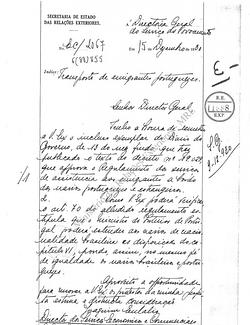 SECRETARIA DE ESTADO
DAS RELAÇÕES EXTERIORES.
Directoria Geral
do Serviço do Povoamento
EC/2067
6(88)855
Em 15
Indice:
Transporte de emigrantes portuguezes.
Senhor Director Geral,
Tenho a honra de remetter
a V. S. o incluso exemplar do Diario do
Governo, de 13 de
publicado o texto do decreto nº
que approva o Regulamento do serviço
de assistencia aos emigrantes a bordo
dos navios portuguezes e estrangeiros.
2. Como V. S. poderá verificar,
o art. 70 do alludido regulamento es-
tipula que o Ministro do Exterior de Portu-
gal poderá estender aos navios de nacio-
nalidade brasileira as disposições do ca-
pitulo VI, pondo, assim, no mesmo pé
de igualdade os navios brasileiros e portu-
guezes.
Aproveito a opportunidade
para renovar a V. S. os protestos da minha
estima e distincta consideração
Joaquim Eulalio
Director dos Serviços Economicos e Commerciaes
R.E.
EXP.